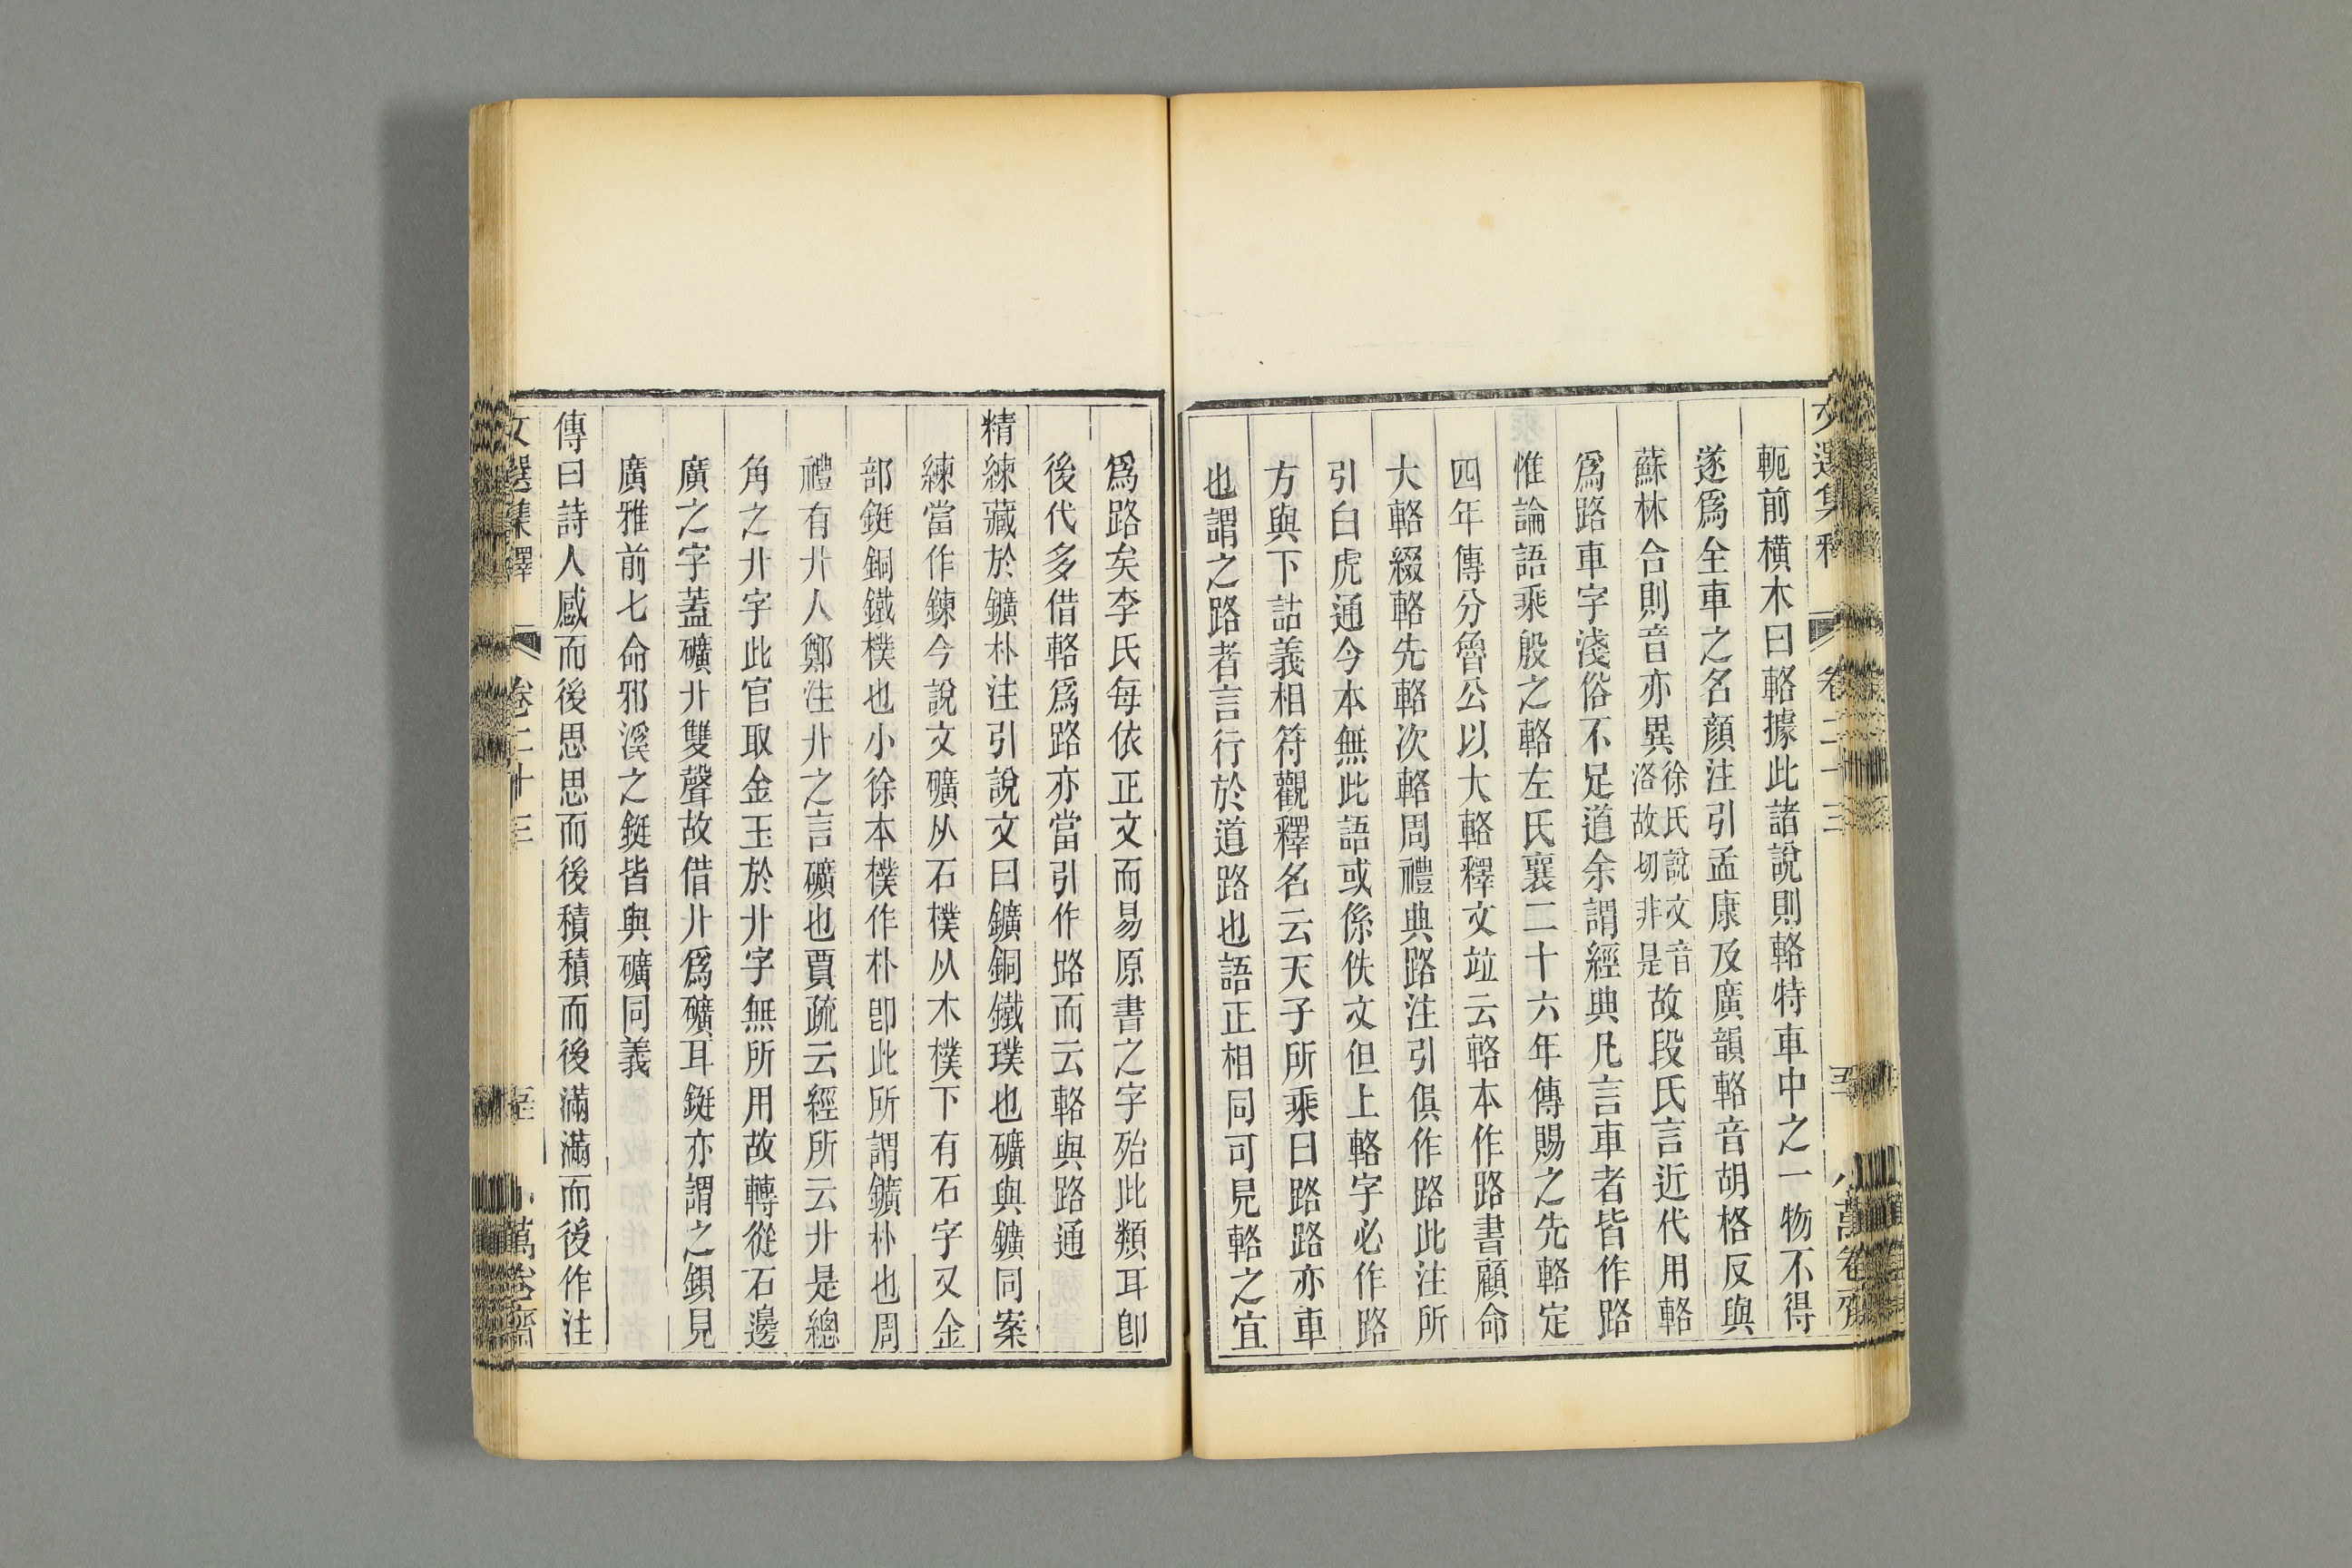 軛前橫木曰輅據此諸說則輅特車中之一物不得
遂爲全車之名顏注引孟康及廣韻輅音胡格反與
蘇林合則音亦異徐氏說文音洛故切非是故段氏言近代用輅
爲路車字淺俗不足道余謂經典凡言車者皆作路
惟論語乘殷之輅左氏襄二十六年傳賜之先輅定
四年傳分魯公以大輅釋文竝云輅本作路書顧命
大輅綴輅先輅次輅周禮典路注引俱作路此注所
引白虎通今本無此語或係佚文但上輅字必作路
方與下詁義相符觀釋名云天子所乘曰路路亦車
也謂之路者言行於道路也語正相同可見輅之宜
爲路矣李氏每依正文而易原書之字殆此類耳卽
後代多借輅爲路亦當引作路而云輅與路通
精練藏於鑛朴注引說文曰鑛銅鐵璞也礦與鑛同案
練當作鍊今說文礦从石樸从木樸下有石字又金
部鋌銅鐵樸也小徐本樸作朴卽此所謂鑛朴也周
禮有卝人鄭注卝之言礦也賈疏云經所云卝是總
角之卝字此官取金玉於卝字無所用故轉從石邊
廣之字蓋礦卝雙聲故借卝爲礦耳鋌亦謂之鎖見
廣雅前七命邪溪之鋌皆與礦同義
傳曰詩人感而後思思而後積積而後滿滿而後作注
文選集釋 卷二十三 小萬卷齋